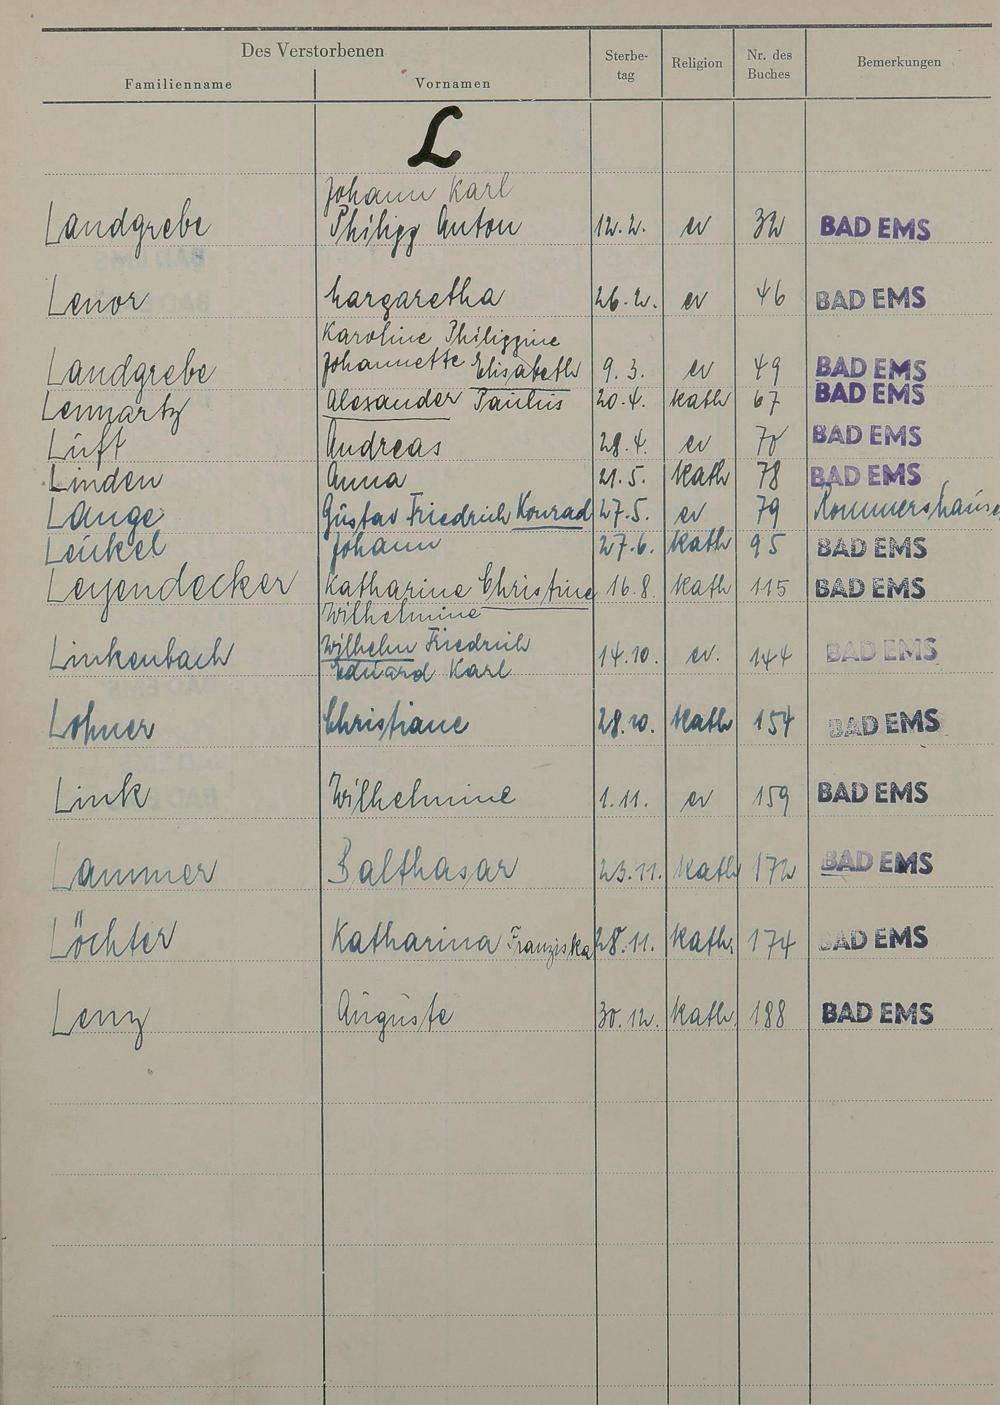 Des Verstorbenen
Familienname Vornamen Sterbe-tag Religion Nr. des Buches Bemerkungen
L
Johann Karl
Landgrebe Philipp Anton 12.2. ev 32 BAD EMS
Lenor Margaretha 26.2. ev 46 BAD EMS
Karoline Philippine
Landgrebe Johannette Elisabeth 9.3. ev 49 BAD EMS
Lennartz Alexander Paulus 20.4. kath 67 BAD EMS
Luft Andreas 28.4. ev 70 BAD EMS
Linden Anna 21.5. kath 78 BAD EMS
Lange Gustav Friedrich Konrad 27.5. ev 79
Leukel Johann 27.6. kath 95 BAD EMS
Leyendecker Katharine Christine 16.8. kath 115 BAD EMS
Wilhelmine
Linkenbach Wilhelm Friedrich 14.10. ev. 144 BAD EMS
Eduard Karl
Lohner Christiane 28.10. kath 154 BAD EMS
Link Wilhelmine 1.11. ev 159 BAD EMS
Lammer Balthasar 23.11. kath 172 BAD EMS
Löchter Katharina Franziska 28.11. kath. 174 BAD EMS
Lenz Auguste 30.12. kath. 188 BAD EMS